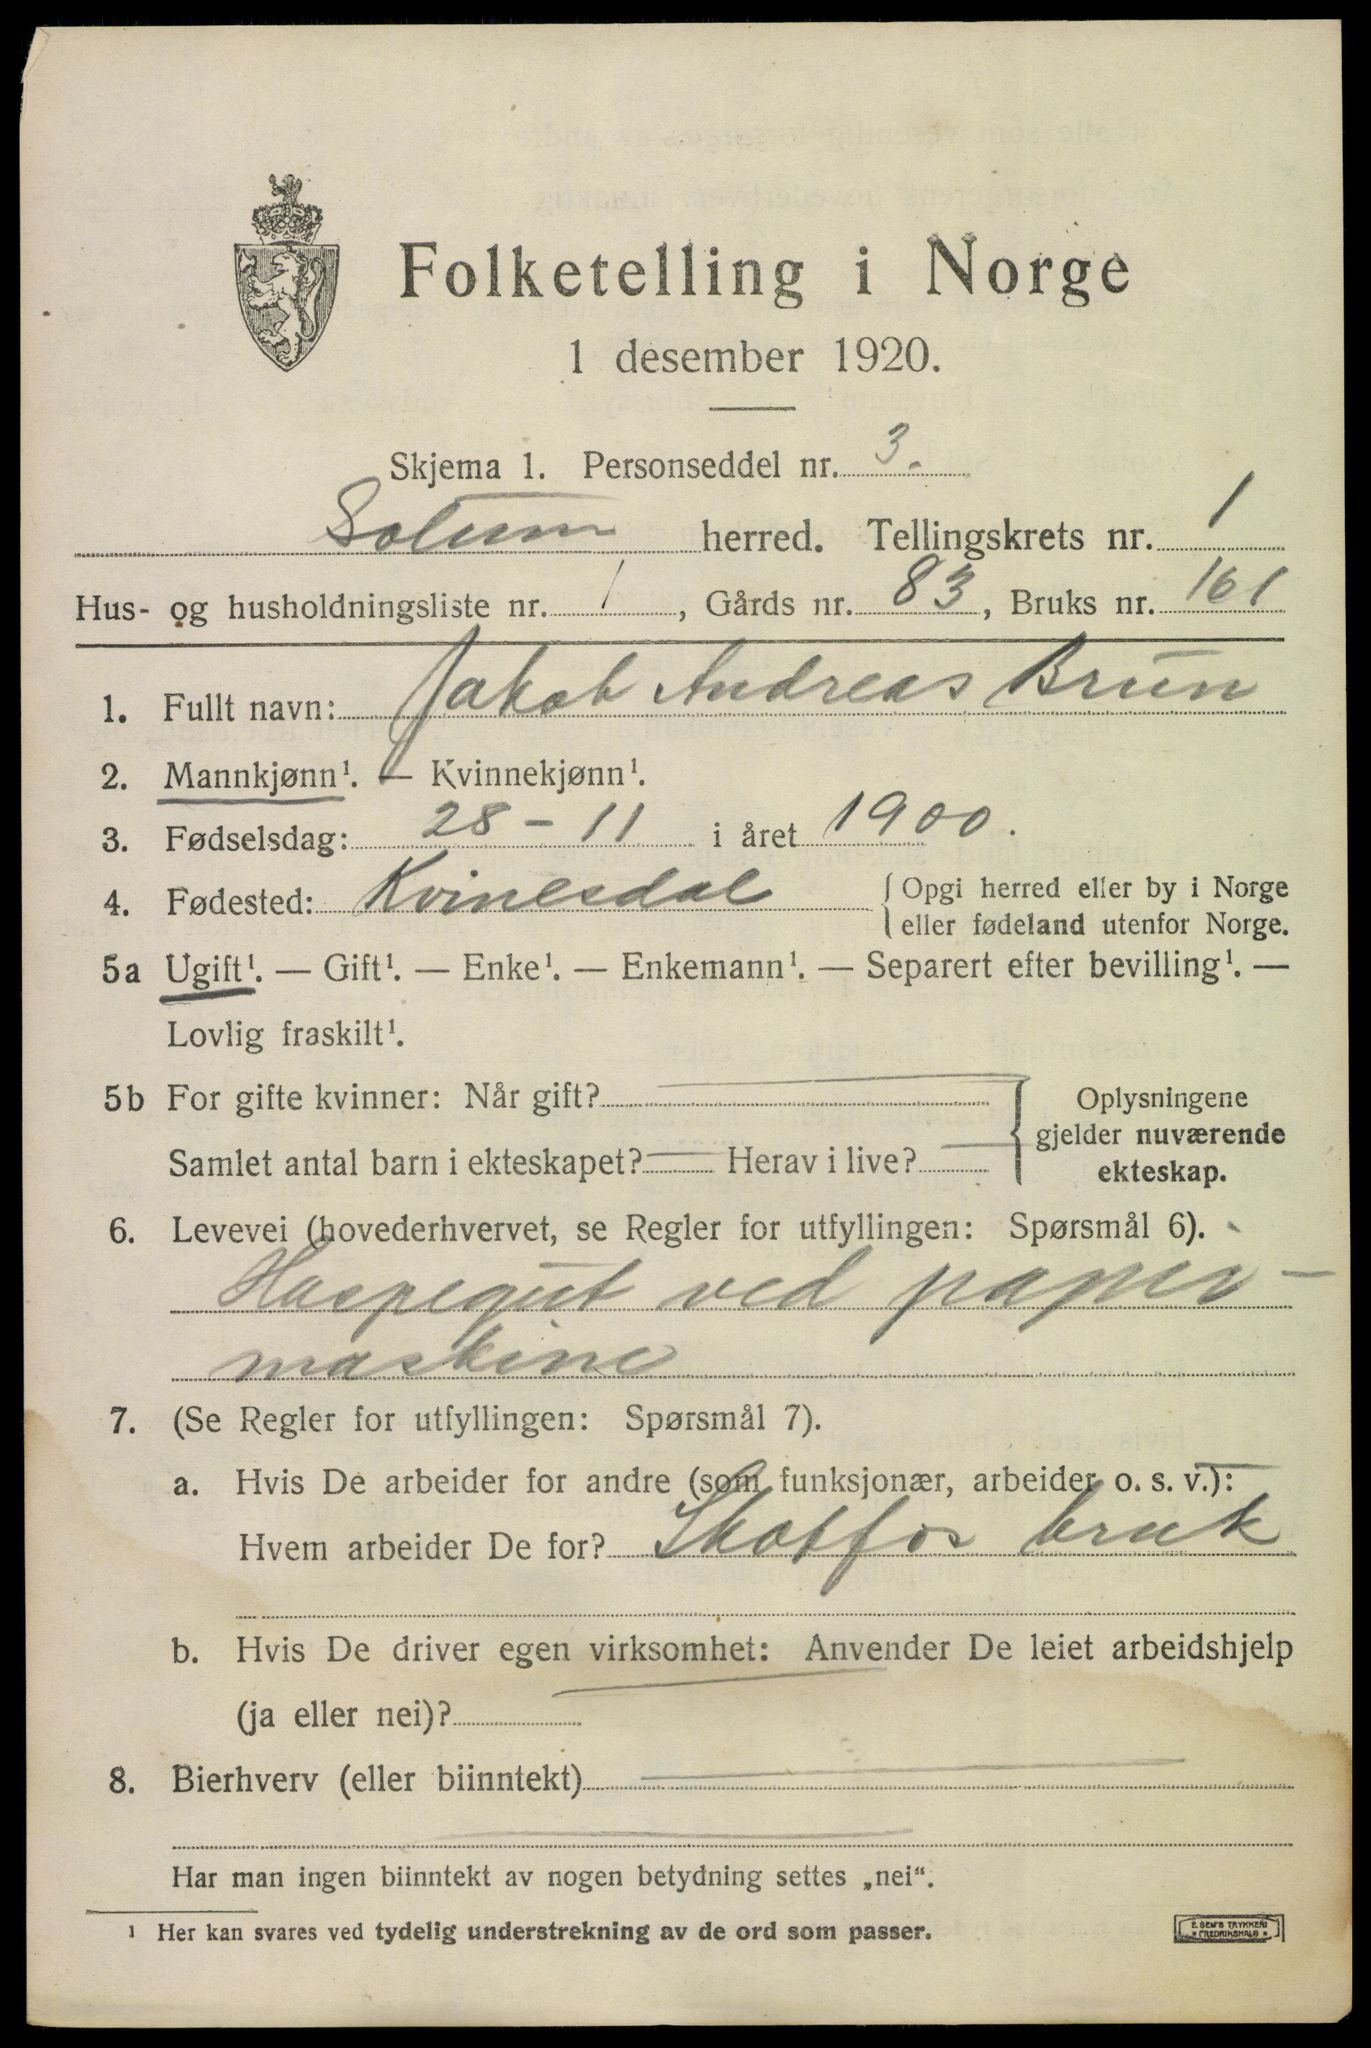 Folketelling i Norge
1 desember 1920.
Skjema 1. Personseddel nr. 3.
Solum herred. Tellingskrets nr. 1
Hus- og husholdningsliste nr. 1, Gårds nr. 83, Bruks nr. 161
1. Fullt navn: Jakob Andreas Brun
2. Mannkjønn¹. — Kvinnekjønn¹.
3. Fødselsdag: 28 - 11 i året 1900.
4. Fødested: Kvinesdal { Opgi herred eller by i Norge
eller fødeland utenfor Norge.
5a Ugift¹. — Gift¹. — Enke¹. — Enkemann¹. — Separert efter bevilling¹. —
Lovlig fraskilt¹.
5b For gifte kvinner: Når gift?
Samlet antal barn i ekteskapet? Herav i live?
Oplysningene
gjelder nuværende
ekteskap.
6. Levevei (hovederhvervet, se Regler for utfyllingen: Spørsmål 6).
Haspegut ved papir-
maskine
7. (Se Regler for utfyllingen: Spørsmål 7).
a. Hvis De arbeider for andre (som funksjonær, arbeider o. s. v.):
Hvem arbeider De for? Skotfos bruk
b. Hvis De driver egen virksomhet: Anvender De leiet arbeidshjelp
(ja eller nei)?
8. Bierhverv (eller biinntekt)
Har man ingen biinntekt av nogen betydning settes „nei“.
¹ Her kan svares ved tydelig understrekning av de ord som passer.
E. SEM'S TRYKKERI
FREDRIKSHALD